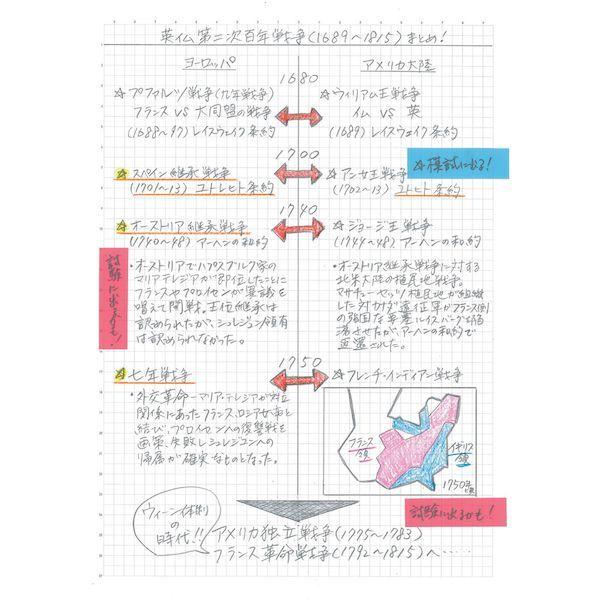 英仏第二次百年戦争(1689〜1815)まとめ!
ヨーロッパ
アメリカ大陸
1680
☆プファルツ戦争(九年戦争)
フランス VS 大同盟の戦争
(1688〜97)レイスウェイク条約
☆ウィリアム王戦争
仏 VS 英
(1689)レイスウェイク条約
1700
☆スペイン継承戦争
(1701〜13)ユトレヒト条約
☆アン女王戦争
(1702〜13)ユトヒト条約
☆模試に出る!
1740
☆オーストリア継承戦争
(1740〜48)アーヘンの和約
☆ジョージ王戦争
(1744〜48)アーヘンの和約
試験に出るかも!
・オーストリアでハプスブルク家の
マリアテレジアが即位したことに
フランスやプロイセンが異議を
唱えて開戦。王位継承は
認められたが、シュレジエン領有
は認められなかった。
・オーストリア継承戦争に対する
北米大陸の植民地戦争。
マサチューセッツ植民地が組織
した対カナダ遠征軍がフランス側
の強固な要塞ルイスバーグを陥
落させたが、アーヘンの和約で
返還された。
1750
☆七年戦争
☆フレンチ・インディアン戦争
・外交革命―マリア・テレジアが対立
関係にあったフランス、ロシアと
結び、プロイセンへの復讐戦を
画策、失敗しシュレジエンへの
帰属が確実なものとなった。
フランス領
イギリス領
1750年
試験に出るかも!
ウィーン体制の時代!!
アメリカ独立戦争(1775〜1783)
フランス革命戦争(1792〜1815)へ・・・・